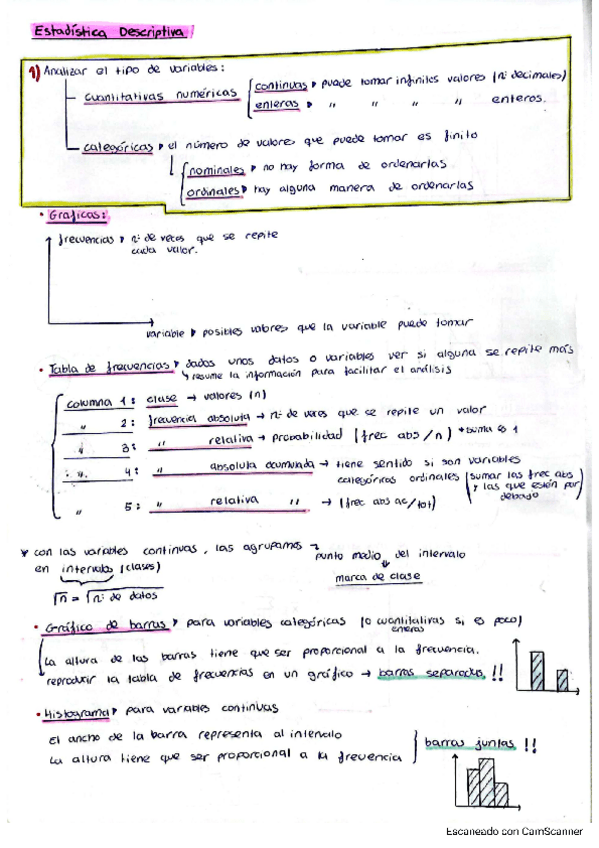 Estadística Descriptiva
1) Analizar el tipo de variables:
cuantitativas numéricas
continuas ▸ puede tomar infinitos valores (nº decimales)
enteras ▸ " " " " enteros.
categóricas ▸ el número de valores que puede tomar es finito
nominales ▸ no hay forma de ordenarlas
ordinales ▸ hay alguna manera de ordenarlas
• Graficas:
frecuencias ▸ nº de veces que se repite
cada valor.
variable ▸ posibles valores que la variable puede tomar
• Tabla de frecuencias ▸ dados unos datos o variables ver si alguna se repite más
↳ resume la información para facilitar el análisis
columna 1: clase → valores (n)
" 2: frecuencia absoluta → nº de veces que se repite un valor
" 3: " relativa → probabilidad (frec abs/n) * suma es 1
" 4: " absoluta acumulada → tiene sentido si son variables
categóricas ordinales (sumar las frec abs
y las que están por
debajo)
" 5: " relativa " → (frec abs ac/tot)
con las variables continuas, las agrupamos
en intervalos (clases)
punto medio del intervalo
marca de clase
√n = √nº de datos
• Gráfico de barras ▸ para variables categóricas (o cuantitativas si es poco)
enteras
La altura de las barras tiene que ser proporcional a la frecuencia.
reproducir la tabla de frecuencias en un gráfico → barras separadas !!
• Histograma ▸ para variables continuas
El ancho de la barra representa al intervalo
La altura tiene que ser proporcional a la frecuencia
barras juntas !!
Escaneado con CamScanner